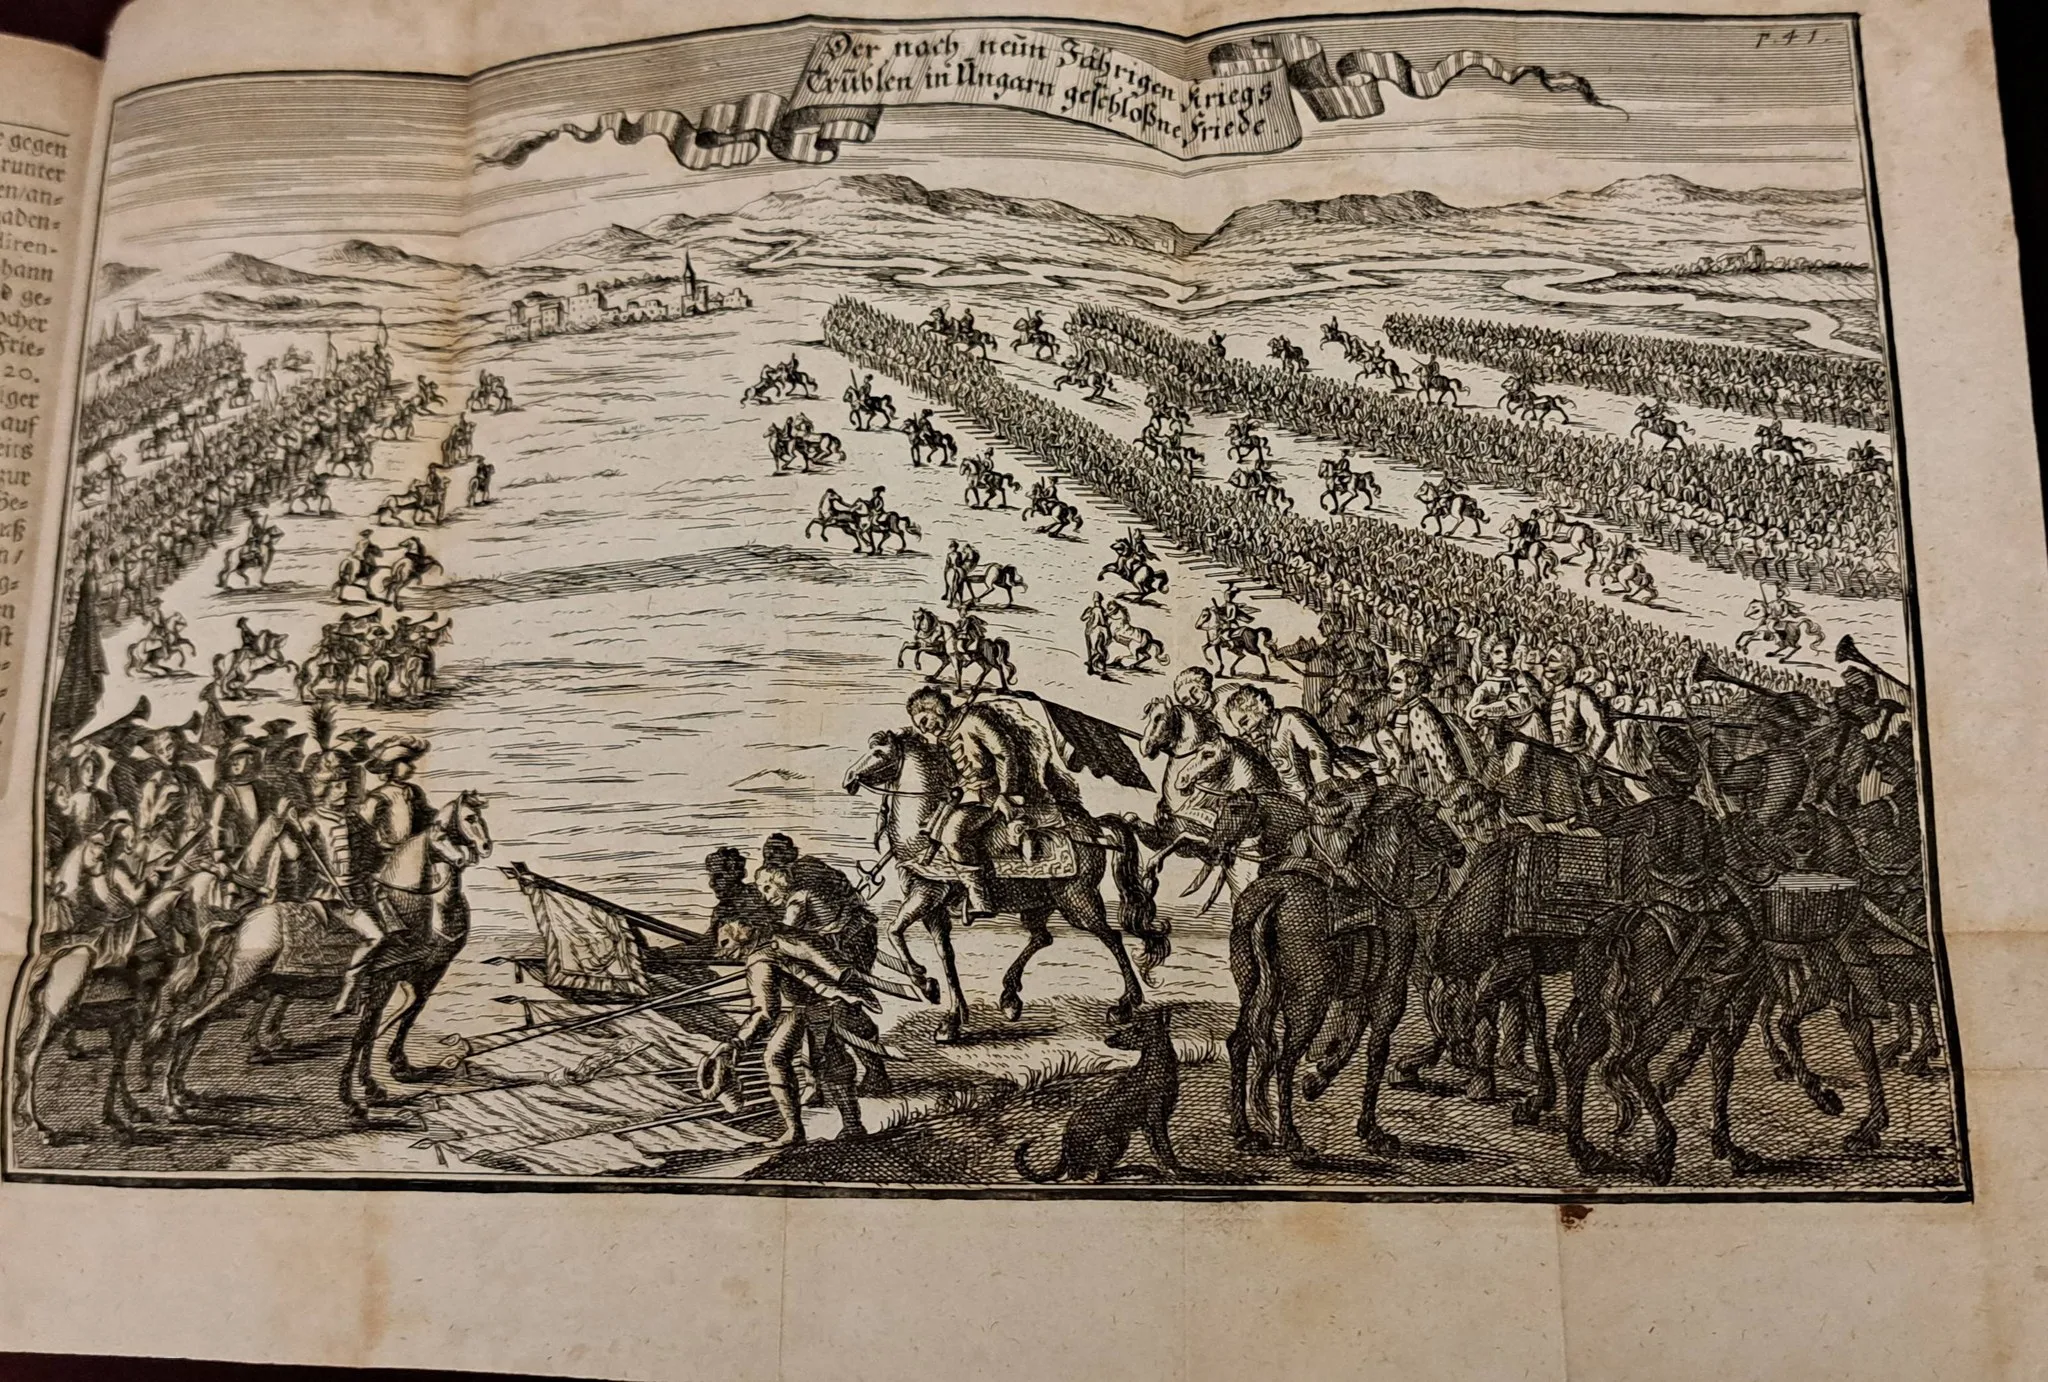 Der nach neün Jährigen Kriegs
Trüblen in Ungarn geschloßne Friede.
P. 41.
e gegen
runter
en/an-
aden-
diren-
hann
d ge-
ocher
Frie-
20.
iger
auf
eits
zur
Ge-
n/
g-
en